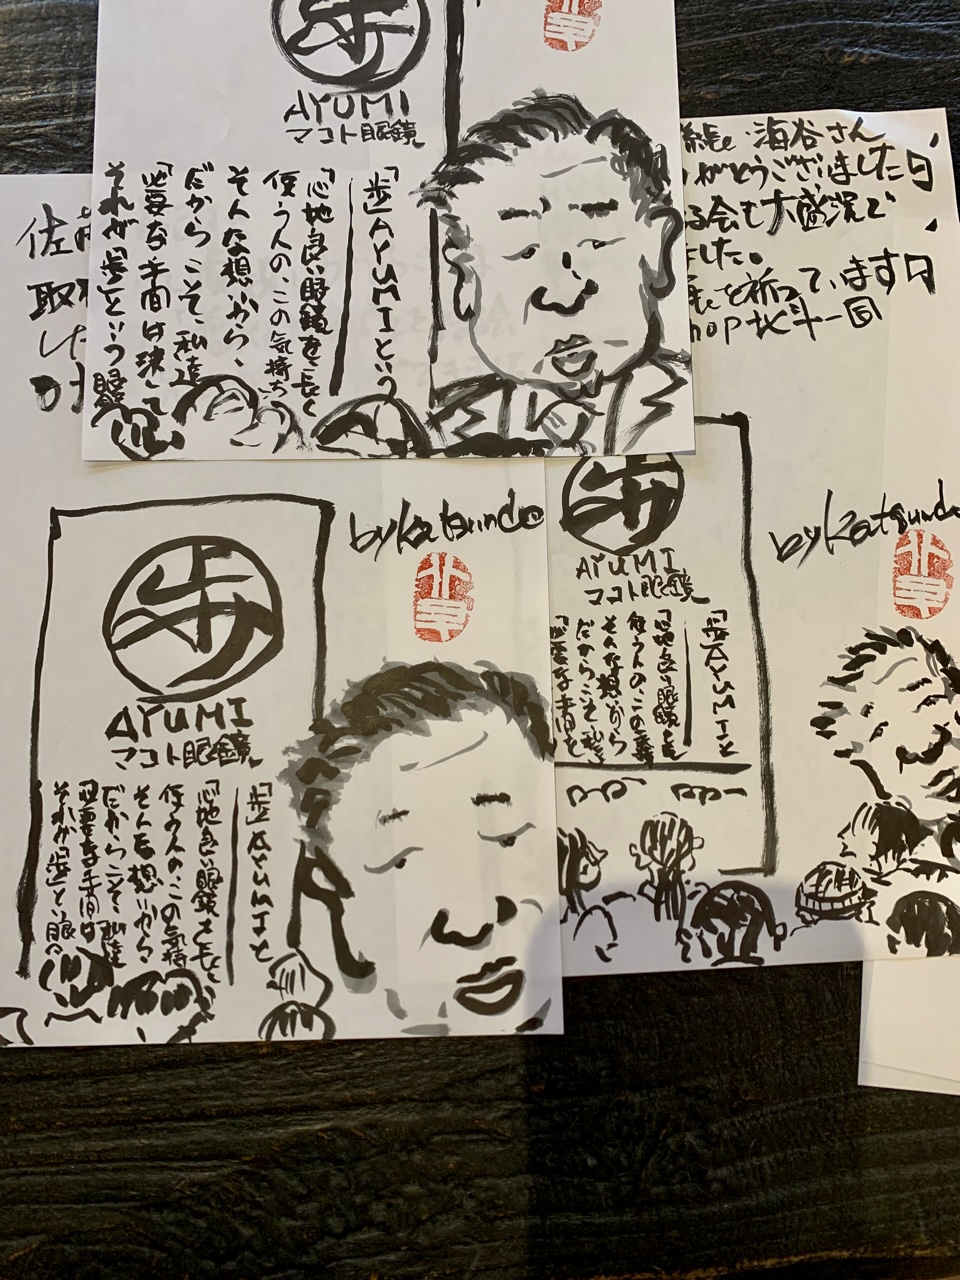 歩
AYUMI
マコト眼鏡
「歩」AYUMIという
「心地良い眼鏡を長く
使う人の、この気持ち
そんな想いから、
だからこそ、私達
必要な手間は決して
それが「歩」という眼
海谷さん
がとうございました
る会も大盛況で
ました。
を祈っています
hop北斗一同
佐
取
した
by Katsundo
歩
AYUMI
マコト眼鏡
「歩」AYUMIと
「心地良い眼鏡を長く
使う人のこの気持
そんな想いから
だからこそ、私達
必要な手間は
それが「歩」という眼
by Katsundo
歩
AYUMI
マコト眼鏡
「歩」AYUMIと
「心地良い眼鏡を
使う人の、この
そんな想いから
だからこそ、私
必要な手間を